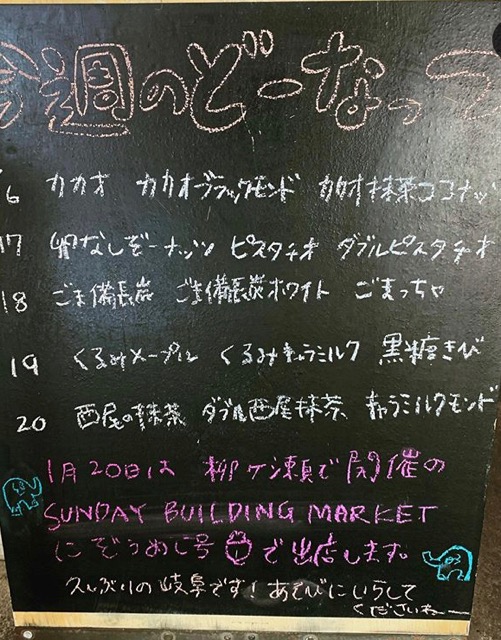 今週のどーなっつ
16 カカオ カカオブラックモンド カカオ抹茶ココナッツ
17 卵なしどーナッツ ピスタチオ ダブルピスタチオ
18 ごま備長炭 ごま備長炭ホワイト ごまっちゃ
19 くるみメープル くるみキャラミルク 黒糖きび
20 西尾の抹茶 ダブル西尾抹茶 キャラミルクモンド
1月20日は 柳ケ瀬で開催の
SUNDAY BUILDING MARKET
にぞうめし号で出店します。
久しぶりの岐阜です！あそびにいらして
くださいねー